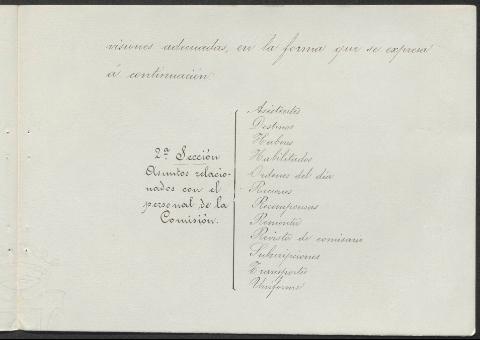 visiones adecuadas, en la forma que se expresa
á continuación
2ª Sección
Asuntos relacio-
nados con el
personal de la
Comisión.
Asistentes
Destinos
Haberes
Habilitados
Ordenes del día
Recompensas
Remonta
Revista de comisario
Subscripciones
Transportes
Uniforme